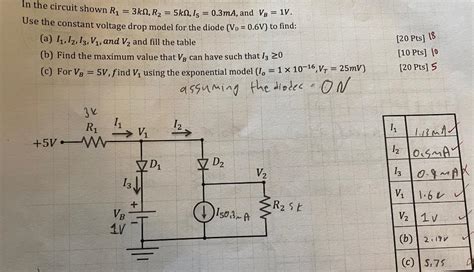 In the circuit shown R₁ = 3kΩ, R₂ = 5kΩ, I₅ = 0.3mA, and V_B = 1V.
Use the constant voltage drop model for the diode (V_D = 0.6V) to find:
(a) I₁, I₂, I₃, V₁, and V₂ and fill the table [20 Pts] 18
(b) Find the maximum value that V_B can have such that I₃ ≥0 [10 Pts] 10
(c) For V_B = 5V, find V₁ using the exponential model (I₀ = 1 × 10⁻¹⁶, V_T = 25mV) [20 Pts] 5
assuming the diodes = ON
3k
R₁
I₁
V₁
I₂
+5V
D₁
D₂
V₂
I₃
V_B
1V
+
-
I₅0.3mA
R₂ 5k
I₁ 1.13mA ✓
I₂ 0.5mA ✓
I₃
V₁ 1.6V ✓
V₂ 1V ✓
(b) 2.19V
(c) 5.75